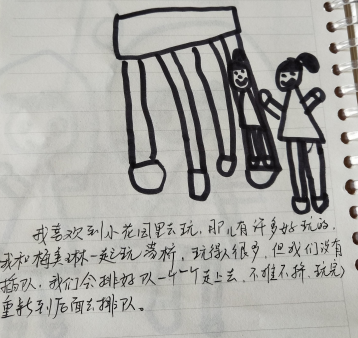 我喜欢到小花园里去玩,那儿有许多好玩的,
我和梅美琳一起玩荡桥,玩得人很多,但我们没有
插队,我们会排好队一个一个走上去,不推不挤,玩完
重新到后面去排队。